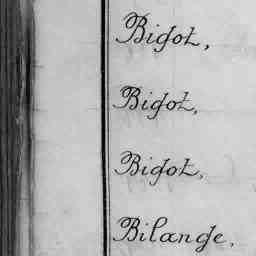 Bigot,
Bigot,
Bigot,
Bilange,